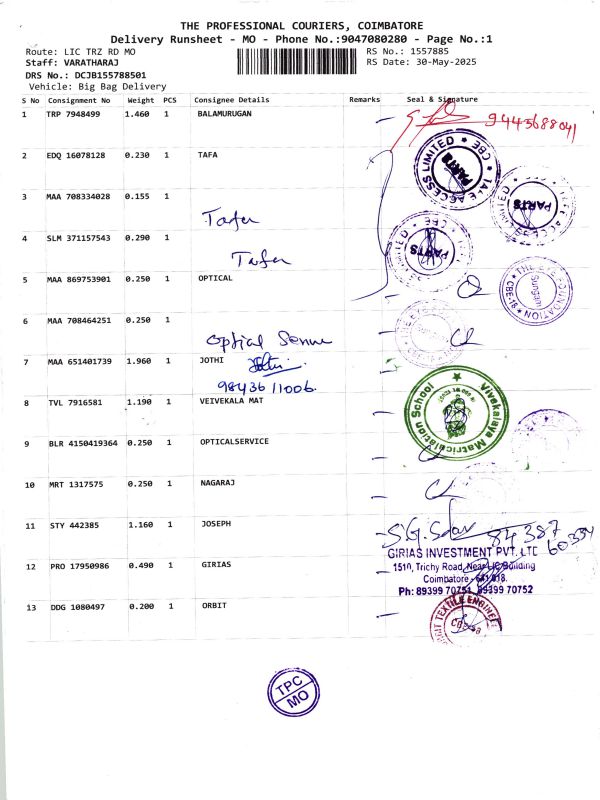 THE PROFESSIONAL COURIERS, COIMBATORE
Delivery Runsheet - MO - Phone No.:9047080280 - Page No.:1
Route: LIC TRZ RD MO
RS No.: 1557885
Staff: VARATHARAJ
RS Date: 30-May-2025
DRS No.: DCJB155788501
Vehicle: Big Bag Delivery
S No Consignment No Weight PCS Consignee Details Remarks Seal & Signature
1 TRP 7948499 1.460 1 BALAMURUGAN
9443688041
2 EDQ 16078128 0.230 1 TAFA
TAFE ACCESS LIMITED ★ CBE ★
PARTS
3 MAA 708334028 0.155 1
Tafe
PARTS
4 SLM 371157543 0.290 1
Tafe
PARTS
5 MAA 869753901 0.250 1 OPTICAL
THE EYE FOUNDATION ★ CBE-18 ★
Sungam
6 MAA 708464251 0.250 1
Optical
7 MAA 651401739 1.960 1 JOTHI
98436 11006.
8 TVL 7916581 1.190 1 VEIVEKALA MAT
Vivekalaya Matriculation School ★
9 BLR 4150419364 0.250 1 OPTICALSERVICE
10 MRT 1317575 0.250 1 NAGARAJ
11 STY 442385 1.160 1 JOSEPH
84387
60334
GIRIAS INVESTMENT PVT. LTD
12 PRO 17950986 0.490 1 GIRIAS
1510, Trichy Road, Near LIC Building
Coimbatore - 641 018.
Ph: 89399 70751, 89399 70752
13 DDG 1080497 0.200 1 ORBIT
TEXTILE ENGINEERS
TPC
MO